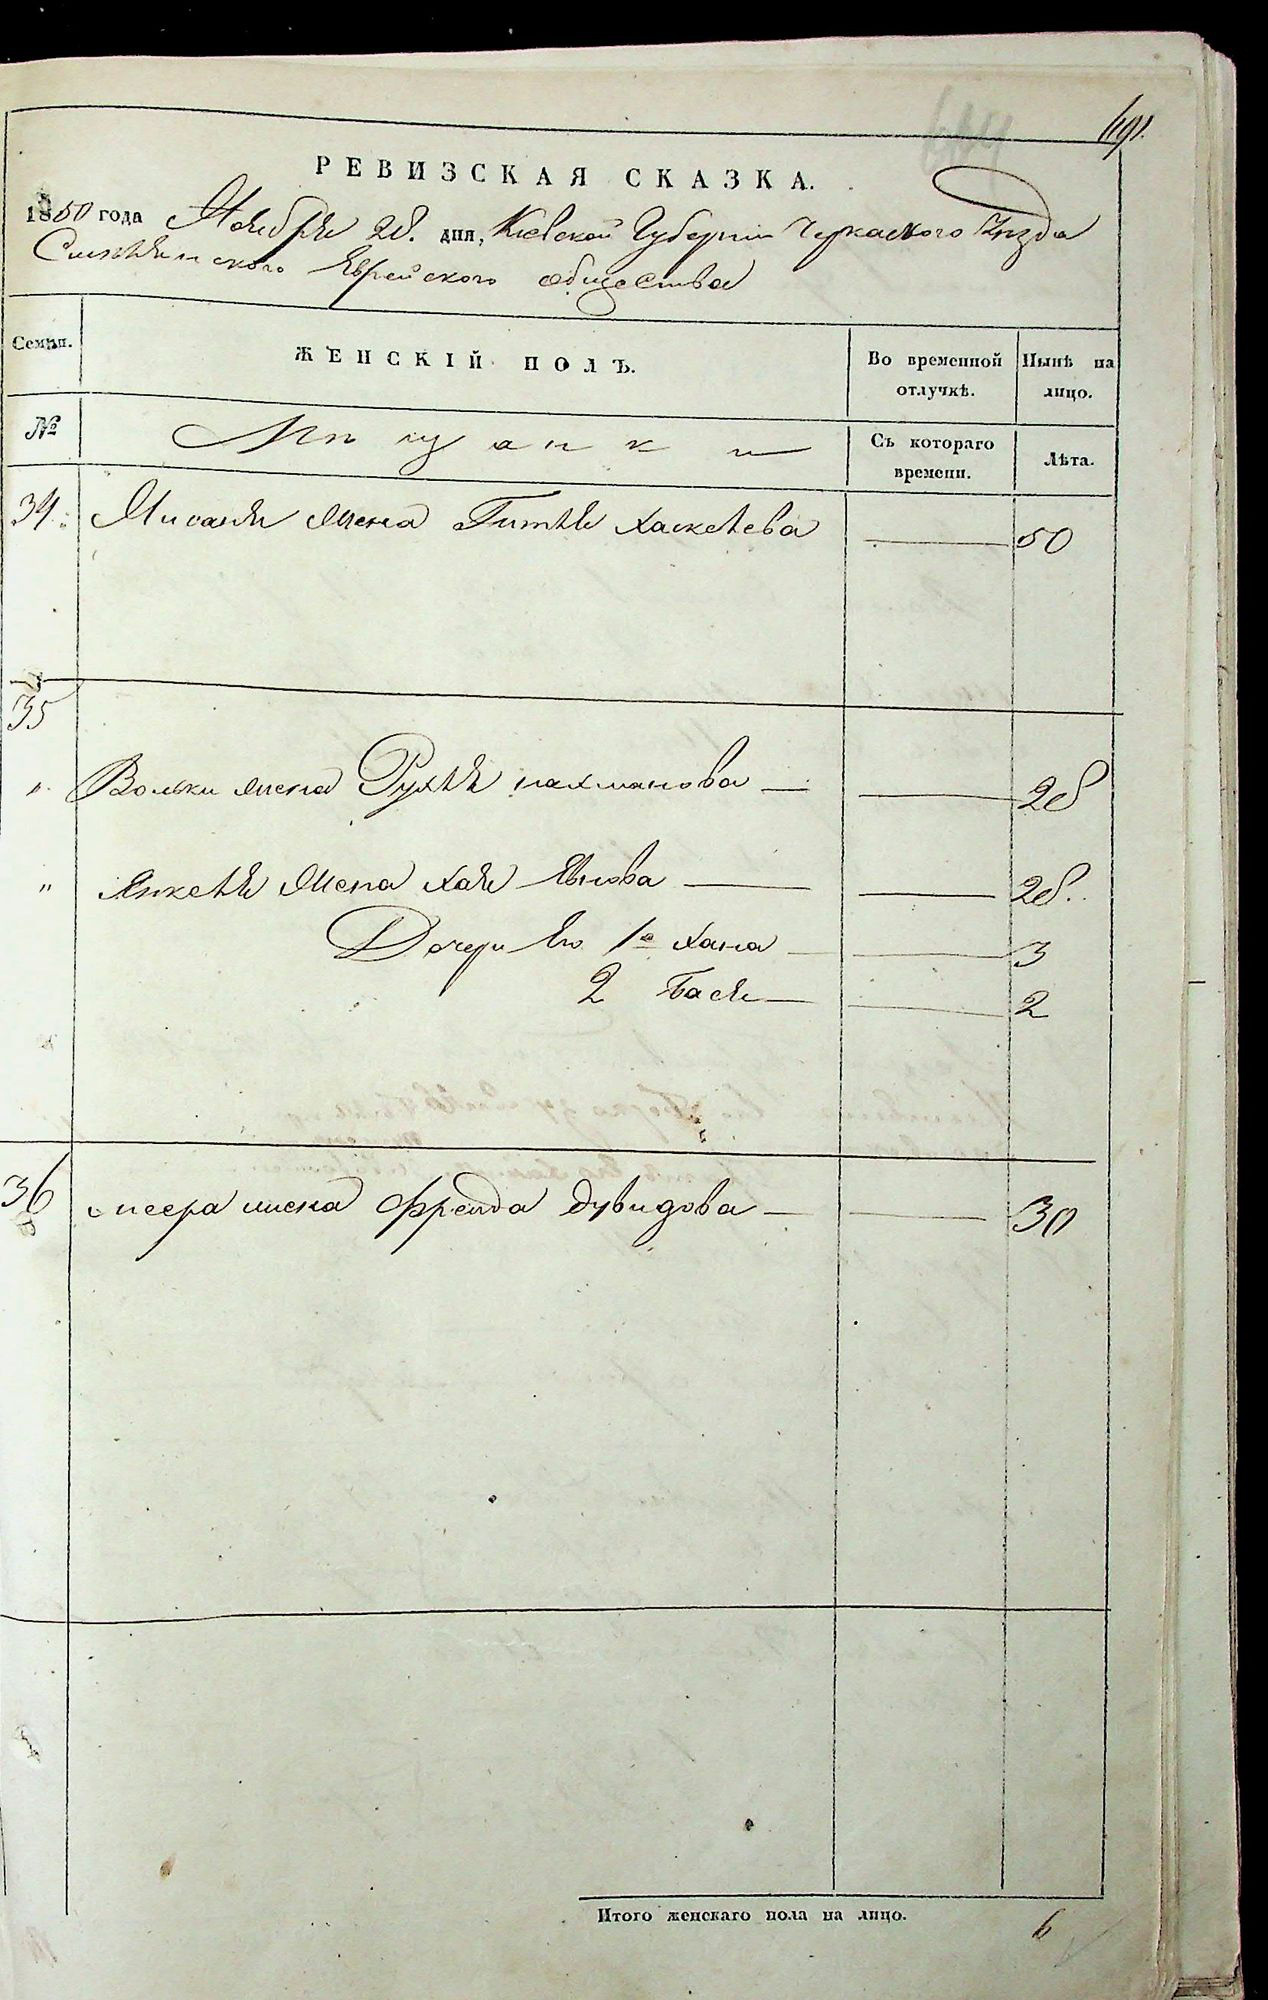 691.
РЕВИЗСКАЯ СКАЗКА.
1850 года Ноября 28. дня, Кіевской Губерніи Черкаского Уезда
Смелянского Еврейского общества
Семьи. ЖЕНСКІЙ ПОЛЪ. Во временной отлучкѣ. Нынѣ на лицо.
№ Мещанки Съ котораго времени. Лѣта.
34. жена Гитля Хаскелева — 50
35
" Вольки жена Рухля Нахманова — — 28
" Янкеля жена Хая — — 28.
Дочери его 1я Хана — — 3
2 Бася — — 2
36 Меера жена Фрейда Дувидова — — 30
Итого женскаго пола на лицо. 6